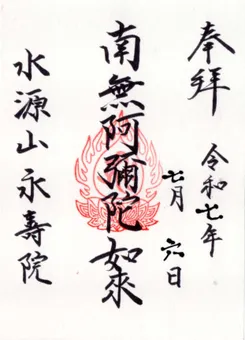 奉拝
令和七年
七月 六日
南無阿彌陀如來
水源山永壽院